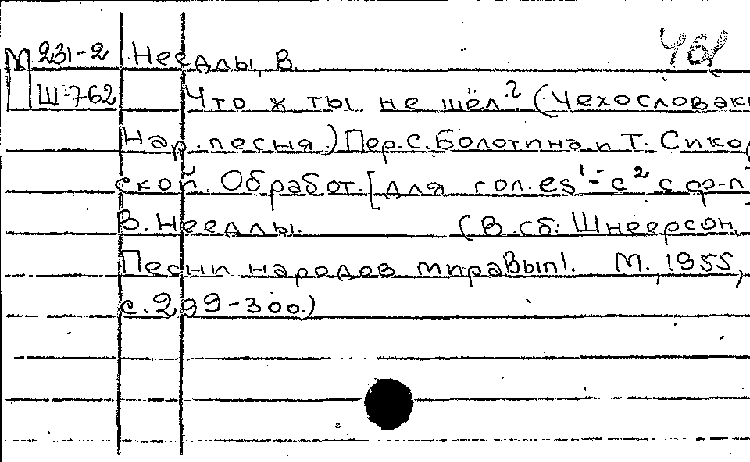 М 231-2 Нееды, В. ЧЫ
Ш-762 Что ж ты не шёл? (Чехословак
Нар. песня.) Пер. С. Болотина и Т. Сикор
ской. Обработ. [для гол. es¹-c² с ф-п
В. Нееды. (В сб: Шнеерсон
Песни народов мира Вып 1. М., 1955,
с. 299-300.)